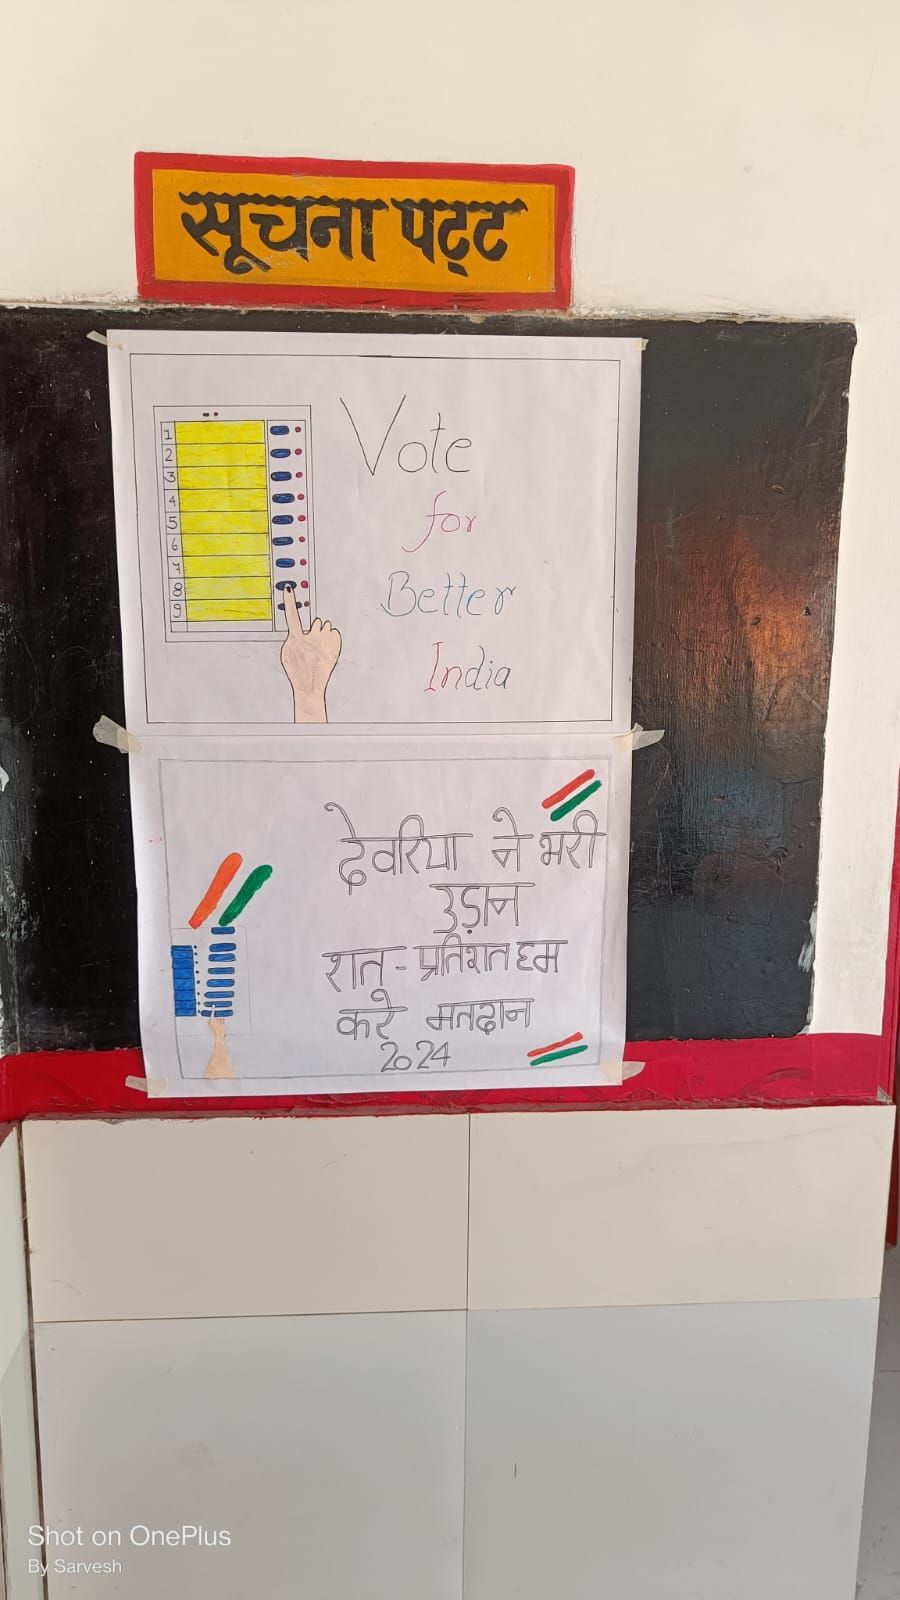 सूचना पट्ट
1
2
3
4
5
6
7
8
9
Vote
for
Better
India
देवरिया ने भरी
उड़ान
शत-प्रतिशत हम
करे मतदान
2024
Shot on OnePlus
By Sarvesh